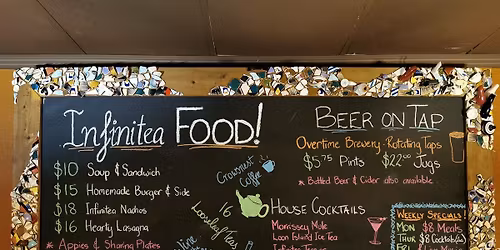 Infinitea FOOD!
$10 Soup & Sandwich
$15 Homemade Burger & Side
$18 Infinitea Nachos
$16 Hearty Lasagna
* Appies & Sharing Plates
Crowsnest
Coffee
16
Looseleaf Teas
Wine
BEER ON TAP
Overtime Brewery - Rotating Taps
$5.75 Pints $22.00 Jugs
* Bottled Beer & Cider also available
HOUSE COCKTAILS
Morrissey Mule
Loon Island Ice Tea
WEEKLY SPECIALS!
MON $8 Meals
THUR $8 Cocktails
FRI